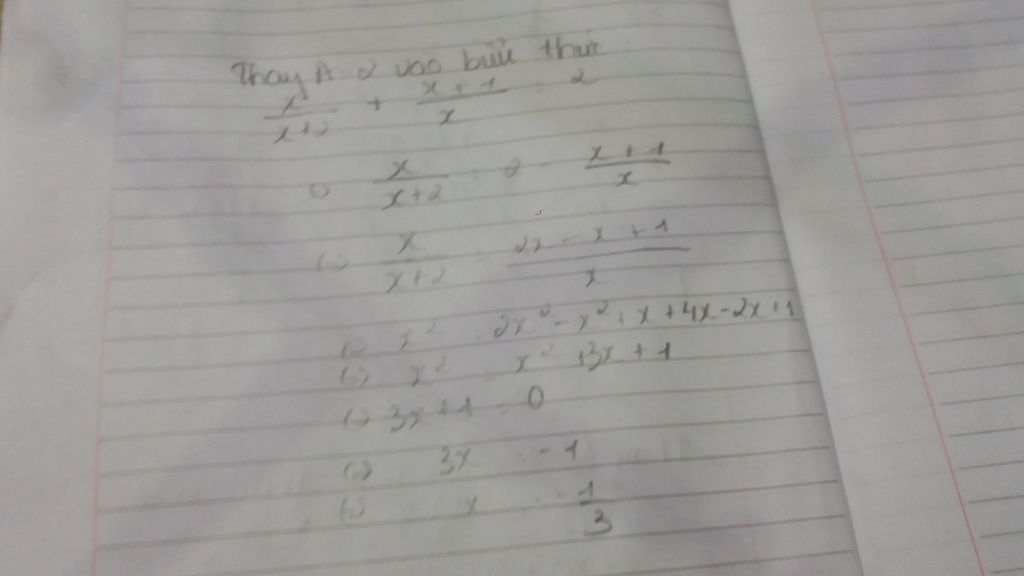 Thay A = 2 vào biểu thức
x/(x+2) + (x+1)/x = 2
(=) x/(x+2) = 2 - (x+1)/x
(=) x/(x+2) = (2x - x + 1)/x
(=) x² = 2x² - x² + x + 4x - 2x + 1
(=) x² = x² + 3x + 1
(=) 3x + 1 = 0
(=) 3x = -1
(=) x = -1/3